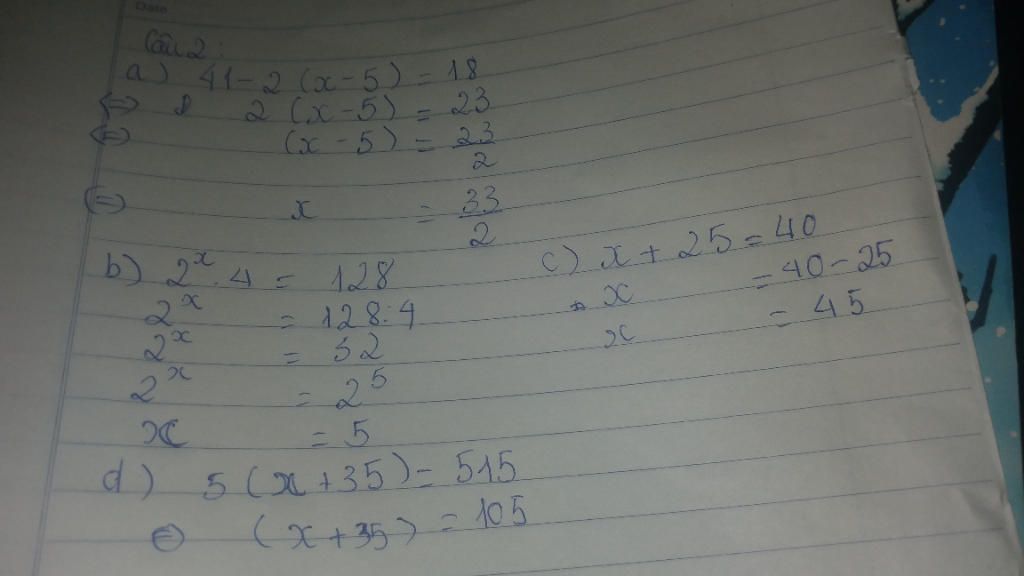 Date
Câu 2:
a) 41 - 2 (x - 5) = 18
<=> 2 (x - 5) = 23
<=> (x - 5) = 23/2
<=> x = 33/2
b) 2^x . 4 = 128
2^x = 128 : 4
2^x = 32
2^x = 2^5
x = 5
c) x + 25 = 40
x = 40 - 25
x = 45
d) 5 (x + 35) = 515
<=> (x + 35) = 105